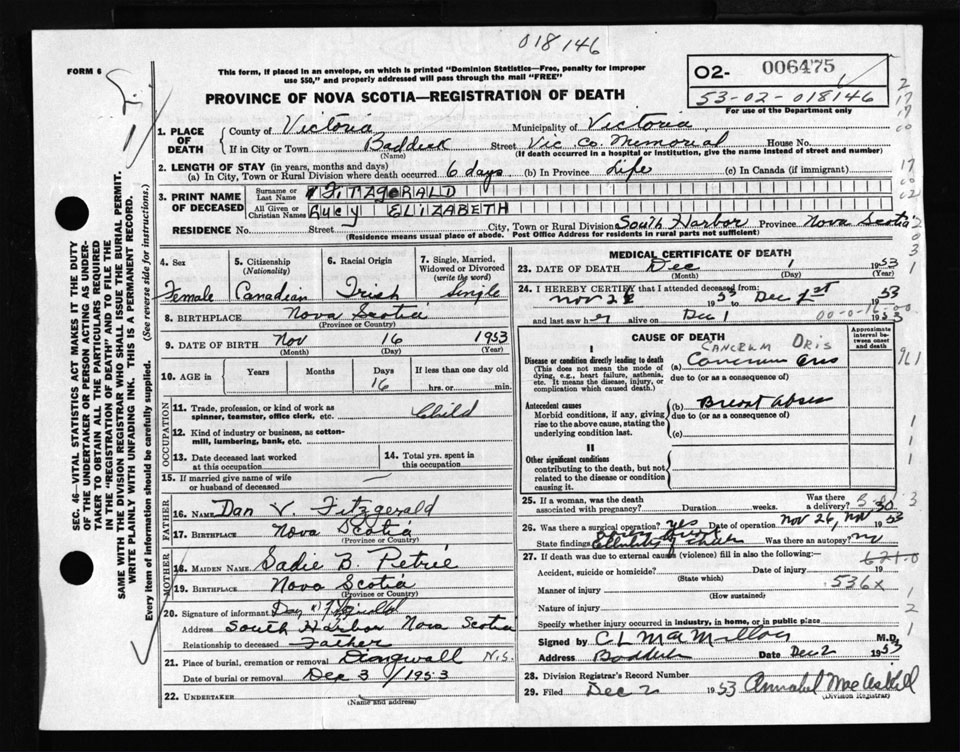 018146
FORM 6
This form, if placed in an envelope, on which is printed "Dominion Statistics—Free, penalty for improper
use $50," and properly addressed will pass through the mail "FREE"
PROVINCE OF NOVA SCOTIA—REGISTRATION OF DEATH
02- 006475
53-02-018146
For use of the Department only
1. PLACE OF DEATH
County of Victoria Municipality of Victoria
If in City or Town Baddeck Street Vic Co. Memorial House No.
(Name) (If death occurred in a hospital or Institution, give the name instead of street and number)
2. LENGTH OF STAY (in years, months and days)
(a) In City, Town or Rural Division where death occurred 6 days (b) In Province Life (c) In Canada (if immigrant)
3. PRINT NAME OF DECEASED
Surname or Last Name FITZGERALD
All Given or Christian Names Lucy ELIZABETH
RESIDENCE No. Street City, Town or Rural Division South Harbor Province Nova Scotia
(Residence means usual place of abode. Post Office Address for residents in rural parts not sufficient)
4. Sex
Female
5. Citizenship (Nationality)
Canadian
6. Racial Origin
Irish
7. Single, Married, Widowed or Divorced (write the word)
Single
8. BIRTHPLACE Nova Scotia
(Province or Country)
9. DATE OF BIRTH Nov 16 1953
(Month) (Day) (Year)
10. AGE in Years Months Days If less than one day old
16 hrs. or min.
OCCUPATION
11. Trade, profession, or kind of work as spinner, teamster, office clerk, etc. Child
12. Kind of industry or business, as cotton-mill, lumbering, bank, etc.
13. Date deceased last worked at this occupation
14. Total yrs. spent in this occupation
15. If married give name of wife or husband of deceased
FATHER
16. Name Dan V. Fitzgerald
17. Birthplace Nova Scotia
(Province or Country)
MOTHER
18. Maiden Name Sadie B. Petrie
19. Birthplace Nova Scotia
(Province or Country)
20. Signature of informant Dan V Fitzgerald
Address South Harbor Nova Scotia
Relationship to deceased Father
21. Place of burial, cremation or removal Dingwall N.S.
Date of burial or removal Dec 3/1953
22. Undertaker
(Name and address)
MEDICAL CERTIFICATE OF DEATH
23. DATE OF DEATH Dec 1 1953
(Month) (Day) (Year)
24. I HEREBY CERTIFY that I attended deceased from:
Nov 26 1953 to Dec 1st 1953
and last saw her alive on Dec 1 1953
00-0-16-00
CAUSE OF DEATH
Approximate interval between onset and death
CANCRUM ORIS
I
Disease or condition directly leading to death (a) Cancrum Oris
(This does not mean the mode of dying, e.g., heart failure, asthenia, etc. It means the disease, injury, or complication which caused death.)
due to (or as a consequence of)
Antecedent causes (b) Breast Abscess
Morbid conditions, if any, giving rise to the above cause, stating the underlying condition last.
due to (or as a consequence of)
(c)
II
Other significant conditions
contributing to the death, but not related to the disease or condition causing it.
25. If a woman, was the death associated with pregnancy? Duration weeks. Was there a delivery?
26. Was there surgical operation? yes Date of operation Nov 26, Nov 30, 1953
State findings Was there an autopsy? no
27. If death was due to external causes (violence) fill in also the following:—
Accident, suicide or homicide? Date of injury
(State which)
Manner of injury 536x
(How sustained)
Nature of injury
Specify whether injury occurred in industry, in home, or in public place
Signed by C L MacMillan M.D.
Address Baddeck Date Dec 2 1953
28. Division Registrar's Record Number
29. Filed Dec 2 1953 Annabel MacAskill
(Division Registrar)
SEC. 46—VITAL STATISTICS ACT MAKES IT THE DUTY
OF THE UNDERTAKER OR PERSON ACTING AS UNDER-
TAKER TO OBTAIN ALL THE PARTICULARS REQUIRED
IN THE "REGISTRATION OF DEATH" AND TO FILE THE
SAME WITH THE DIVISION REGISTRAR WHO SHALL ISSUE THE BURIAL PERMIT.
WRITE PLAINLY WITH UNFADING INK. THIS IS A PERMANENT RECORD.
Every item of information should be carefully supplied. (See reverse side for instructions.)